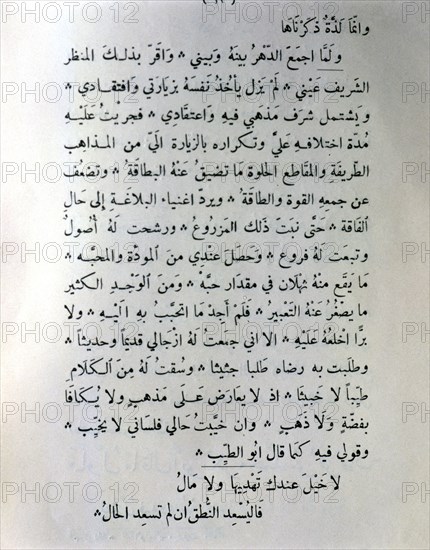 (١٨)
وانّما لذّة ذكرناها
ولمّا اجمعَ الدّهرُ بينهُ وبيني * واقرّ بذلك المنظر
الشريف عَيْني * لَمْ يزل يأخُذ نَفسَهُ بزيارَتي وَافتقادي *
وَيشتمل شرَف مَذهَبي فيهِ وَاعتقادي * فجريتُ عليهِ
مُدّة اختلافهِ عليَّ وَتكراره بالزيارة اليّ من المذاهب
الطّريفةِ والمقاطع الحلوة مَا تضيقُ عنهُ البطاقَةُ * وتضعُف
عن جمعهِ القوة والطاقةُ * ويردّ اغنياء البلاغَةِ إلى حَالِ
الفاقة * حَتّى نبتَ ذلك المزروعُ * ورشحت لهُ أصُولٌ
وتبعَت لهُ فروعُ * وَحَصل عندي منَ المودّة والمحبّه *
مَا يقَع منهُ ثهْلان في مقدار حبّه * ومنَ الوَجْدِ الكثير
ما يصْغُر عَنهُ التعْبير * فلَم أجدْ مَا اتحبّب به اليْهِ * ولا
برًا اخلعهُ عَليْهِ * الا اني جمعتُ لهُ ازجالي قديمًا وَحديثًا *
وطلبت به رضاه طلبا حثيثا * وسقت لهُ مِن الكلامِ
طيّبًا لا خَبيثا * اذ لا يعارَض عَلى مَذهبٍ ولا يُكافا
بفضّةٍ وَلَا ذَهبٍ * وان خيّبتُ حَالي فلسَاني لا يخيّب *
وقولي فيهِ كمَا قال ابُو الطيّب *
لا خَيْل عندك تهْديهَا ولا مَالُ
فاليُسْعِد النُّطقُ ان لم تسعِد الحالُ *